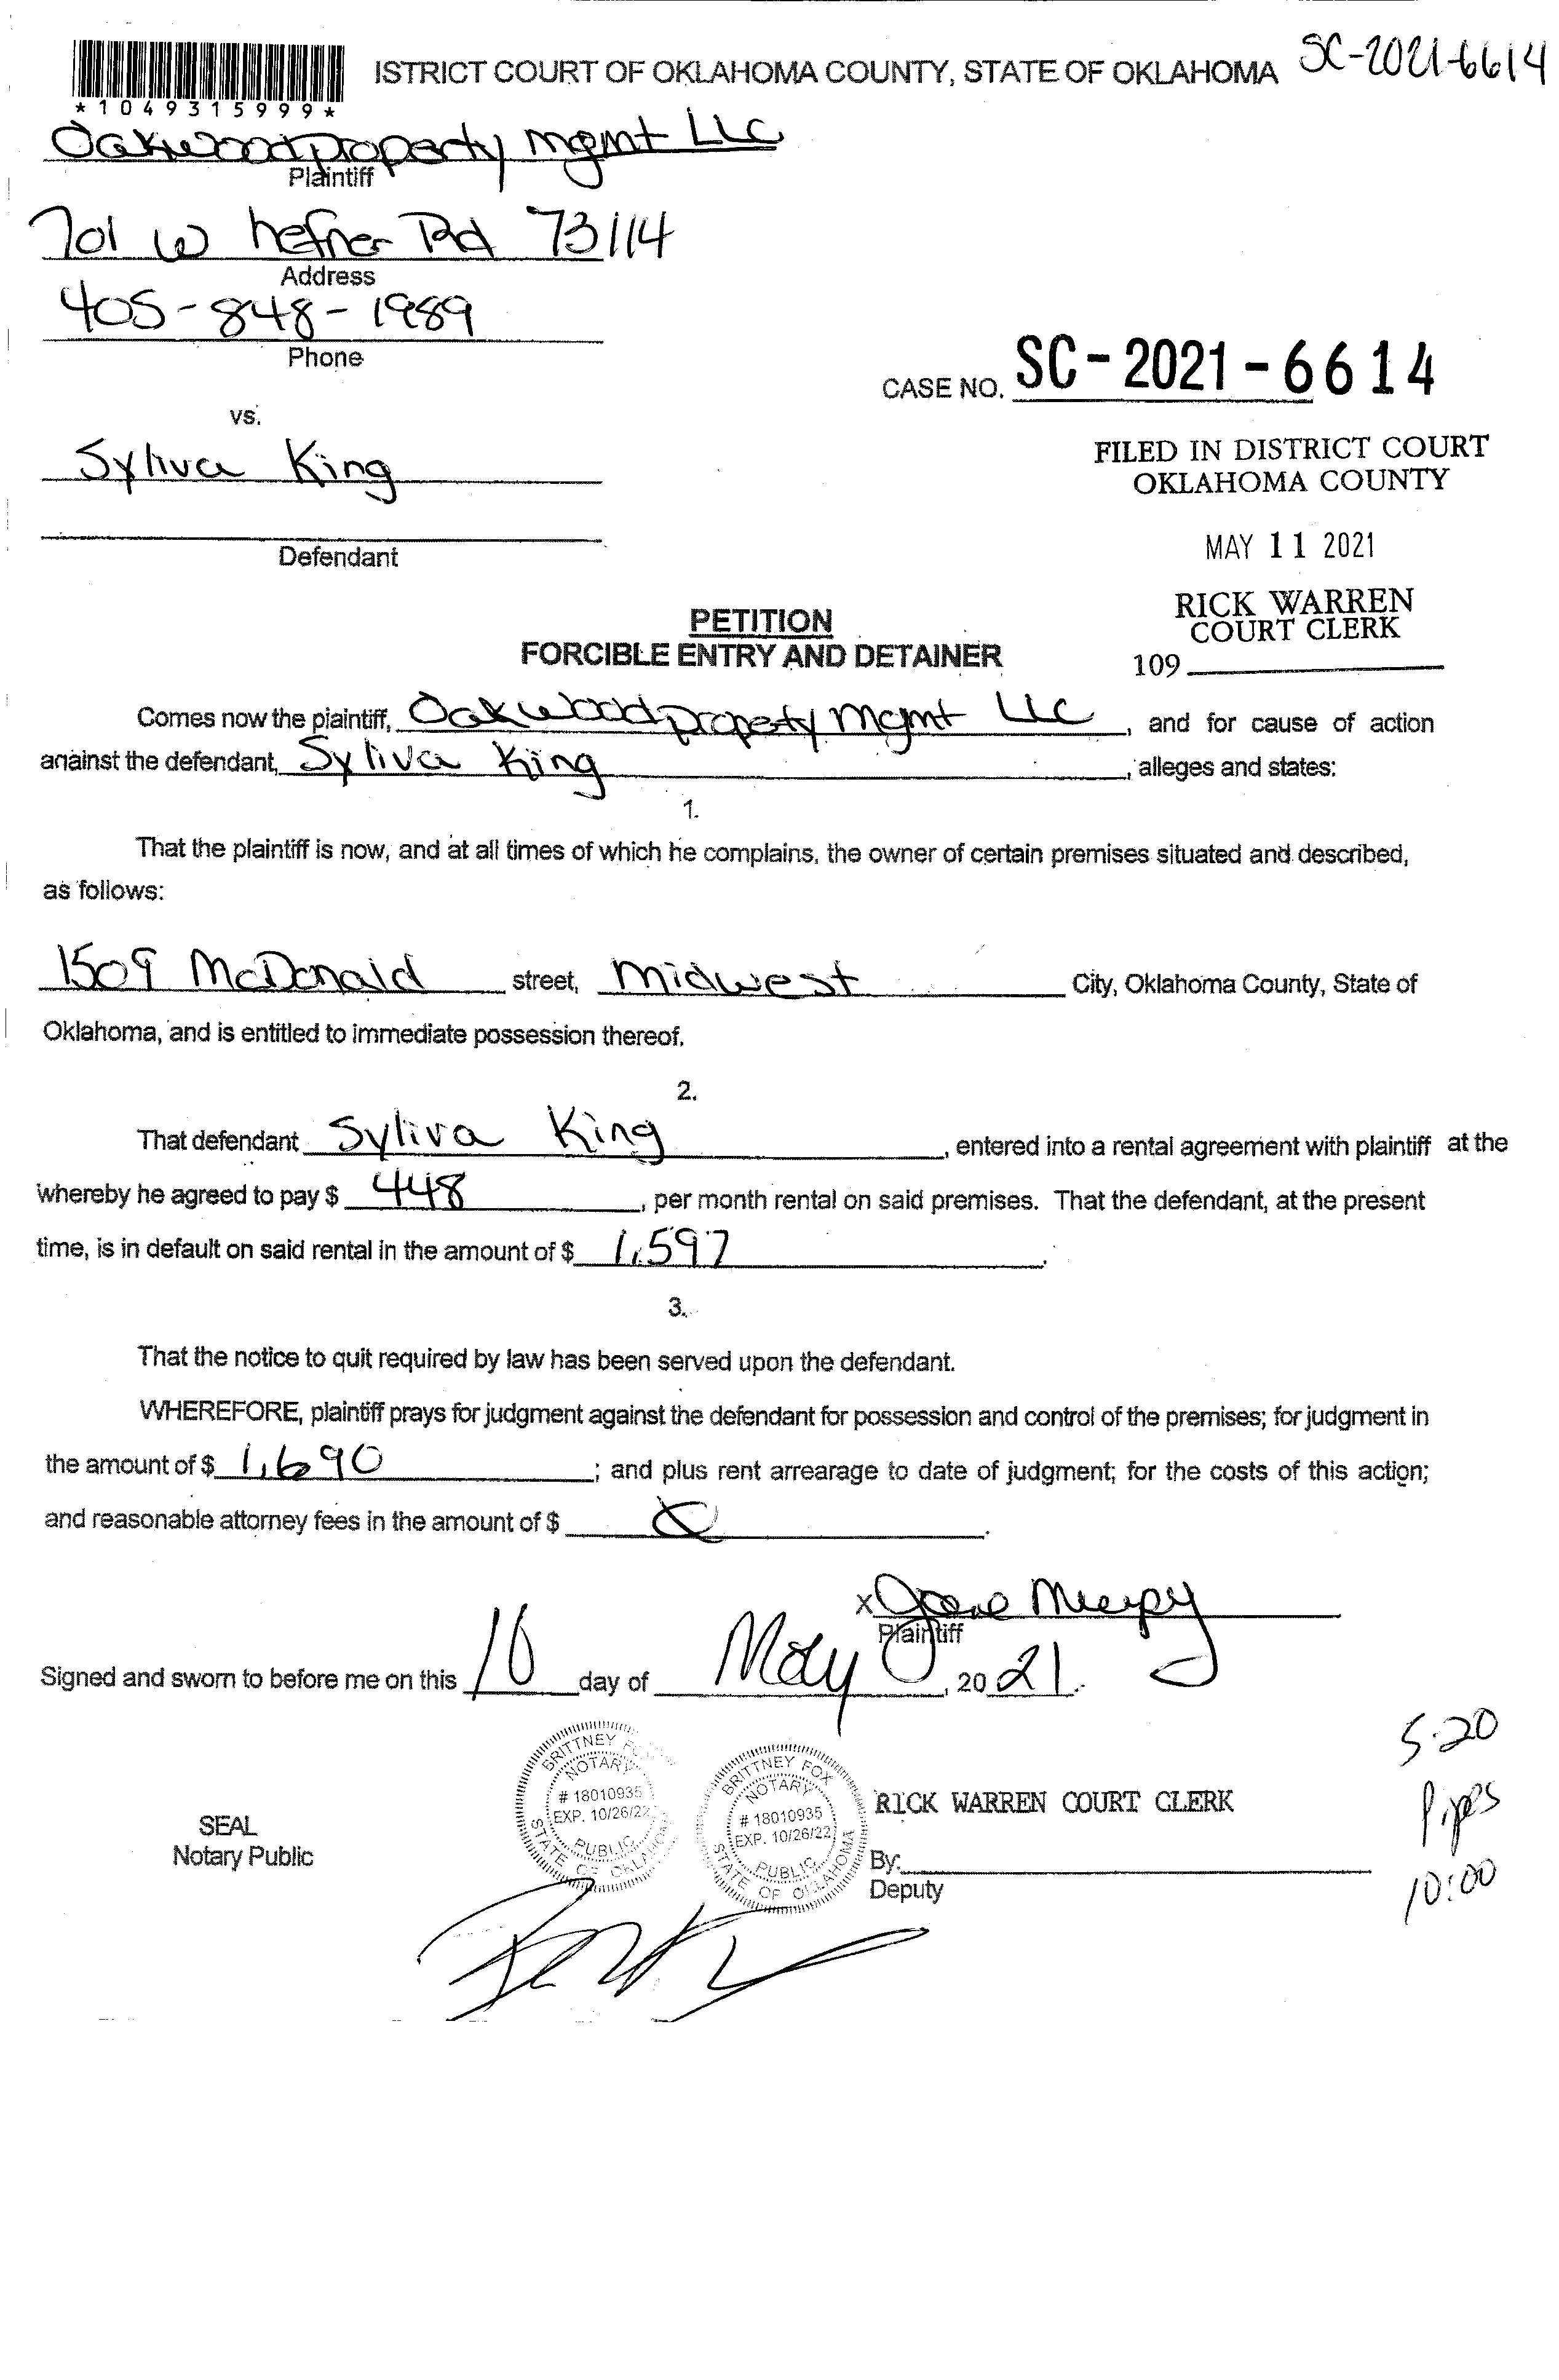 ISTRICT COURT OF OKLAHOMA COUNTY, STATE OF OKLAHOMA SC-2021-6614
*1049315999*
Oakwood property mgmt LLC
Plaintiff
701 W hefner Rd 73114
Address
405-848-1989
Phone
CASE NO. SC-2021-6614
vs.
Syliva King
FILED IN DISTRICT COURT
OKLAHOMA COUNTY
Defendant
MAY 11 2021
RICK WARREN
COURT CLERK
109
PETITION
FORCIBLE ENTRY AND DETAINER
Comes now the plaintiff, Oakwood property Mgmt LLC, and for cause of action
against the defendant, Syliva King, alleges and states:
1.
That the plaintiff is now, and at all times of which he complains, the owner of certain premises situated and described,
as follows:
1509 McDonald street, Midwest City, Oklahoma County, State of
Oklahoma, and is entitled to immediate possession thereof.
2.
That defendant Syliva King, entered into a rental agreement with plaintiff at the
whereby he agreed to pay $ 448, per month rental on said premises. That the defendant, at the present
time, is in default on said rental in the amount of $ 1,597.
3.
That the notice to quit required by law has been served upon the defendant.
WHEREFORE, plaintiff prays for judgment against the defendant for possession and control of the premises; for judgment in
the amount of $ 1,690; and plus rent arrearage to date of judgment; for the costs of this action;
and reasonable attorney fees in the amount of $
x
Plaintiff
Signed and sworn to before me on this 10 day of May, 2021.
5-20
Pipes
10:00
BRITTNEY FOX
NOTARY
# 18010935
EXP. 10/26/22
PUBLIC
STATE OF OKLAHOMA
BRITTNEY FOX
NOTARY
# 18010935
EXP. 10/26/22
PUBLIC
STATE OF OKLAHOMA
RICK WARREN COURT CLERK
SEAL
Notary Public
By:
Deputy